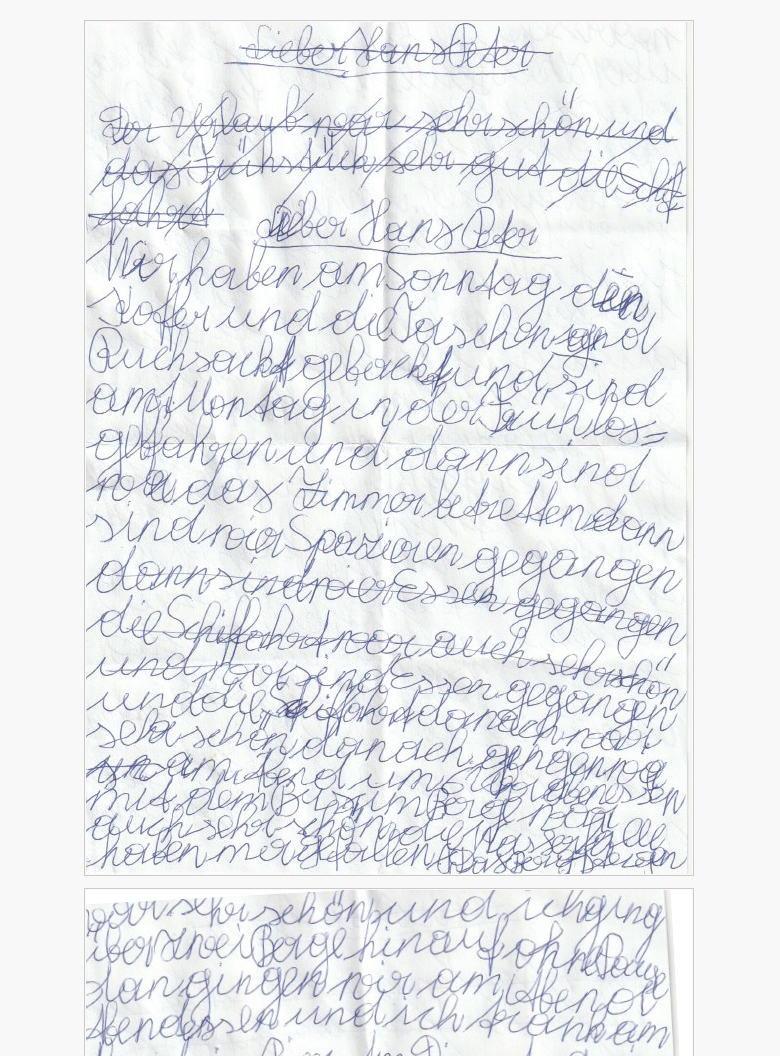 Lieber Hans Peter
Der Urlaub war sehr schön und
das Frühstück sehr gut die Schif
fahrt
Lieber Hans Peter
Wir haben am Sonntag den
Kofer und die Taschen und
Ruchsackt gebackt und sind
am Montag in der Früh los=
gefahren und dann sind
das Zimmer betretten dann
sind wir Spazieren gegangen
dann sind wir Essen gegangen
die Schiffahrt war auch sehr schön
und wir sind Essen gegangen
und die Schifahrt danach war
sehr schön danach
am Abend um 6 Uhr abendessen
mit dem Bus zum Berg war
auch sehr schön die Wasserfälle
haben mir gefallen
war sehr schön und ich ging
über zwei Berge hinauf ohne Pause
dan gingen wir am Abend
Abendessen und ich trank am